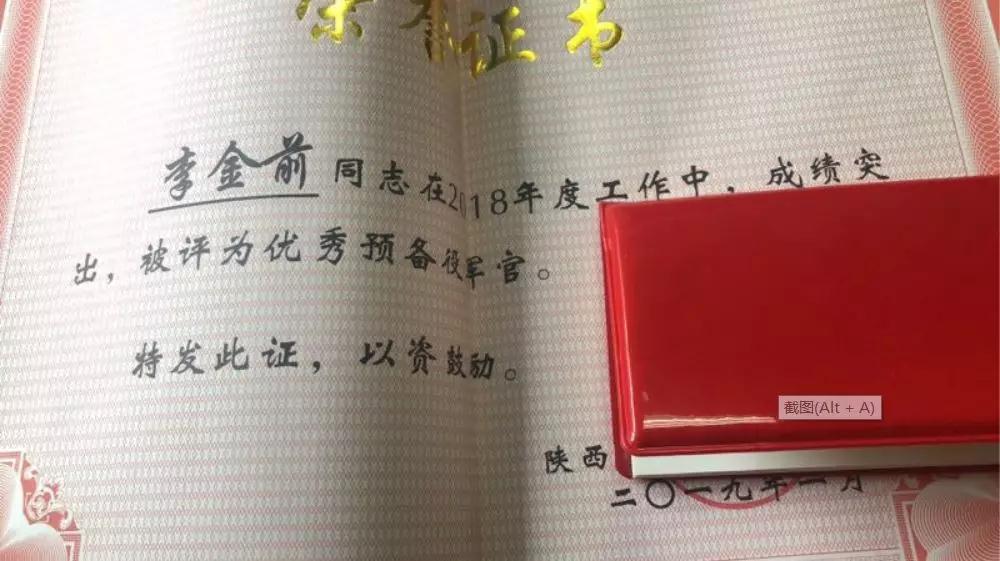 荣誉证书
李金前同志在2018年度工作中，成绩突
出，被评为优秀预备役军官。
特发此证，以资鼓励。
陕西
二〇一九年一月
截图(Alt + A)